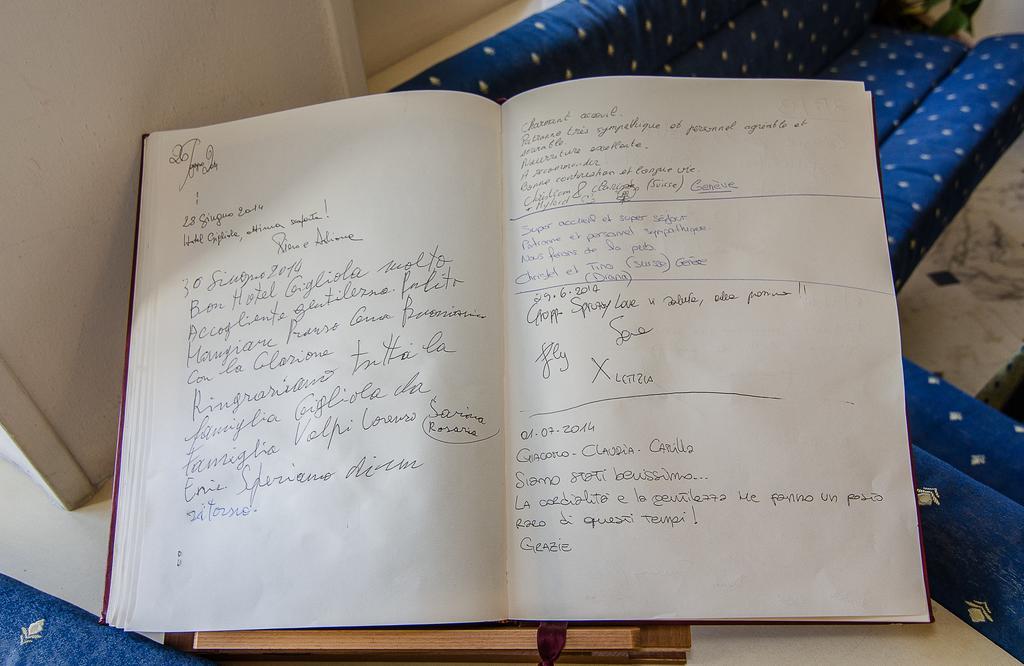 28 Giugno 2014
Hotel Gigliola, ottima scoperta!
Piero e Adriana
30 Giugno 2014
Bon Hotel Gigliola molto
Accogliente gentilezza Pulito
Mangiare Pranzo Cena Buonissima
con la Colazione
Ringraziamo tutta la
famiglia Gigliola da
famiglia Volpi Lorenzo Savina
Rosaria
Enie Speriamo di un
ritorno.
Charmant accueil.
Patronne très sympathique et personnel agréable et
serviable.
Nourriture excellente.
A recommander
Bonne continuation et longue vie.
Christian & (Suisse) Genève
Super accueil et super séjour
Patronne et personnel sympathique.
Nous ferons de la pub.
Christel et Tino (Suisse) Genève
(Diana)
29.6.2014
Gruppo Spray Love vi saluta, alla prossima!!
Sere
fly
X LETIZIA
01.07.2014
GIACOMO - CLAUDIA - CAMILLA
Siamo stati benissimo...
La cordialità e la gentilezza ne fanno un posto
raro di questi tempi!
GRAZIE